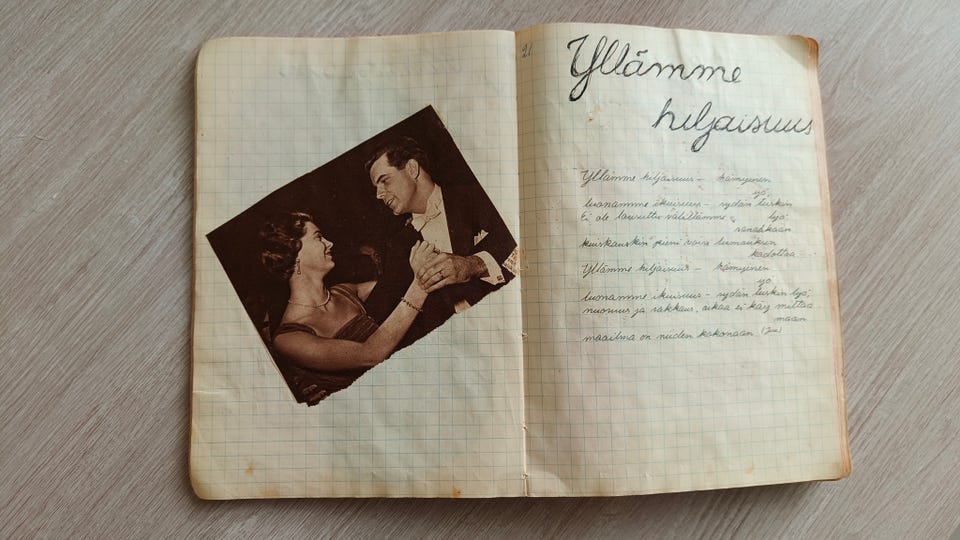 21.
Yllämme
hiljaisuus
Yllämme hiljaisuus – hämyinen
yö,
luonamme ikuisuus – sydän tuskin
Ei ole lausuttu välillämme lyö.
sanaakaan
kuiskauskin pieni voisi lumouksen
kadottaa
Yllämme hiljaisuus – hämyinen
yö
luonamme ikuisuus – sydän tuskin lyö,
nuoruus ja rakkaus, aikaa ei käy mittaa
maan
maailma on niiden kokonaan.